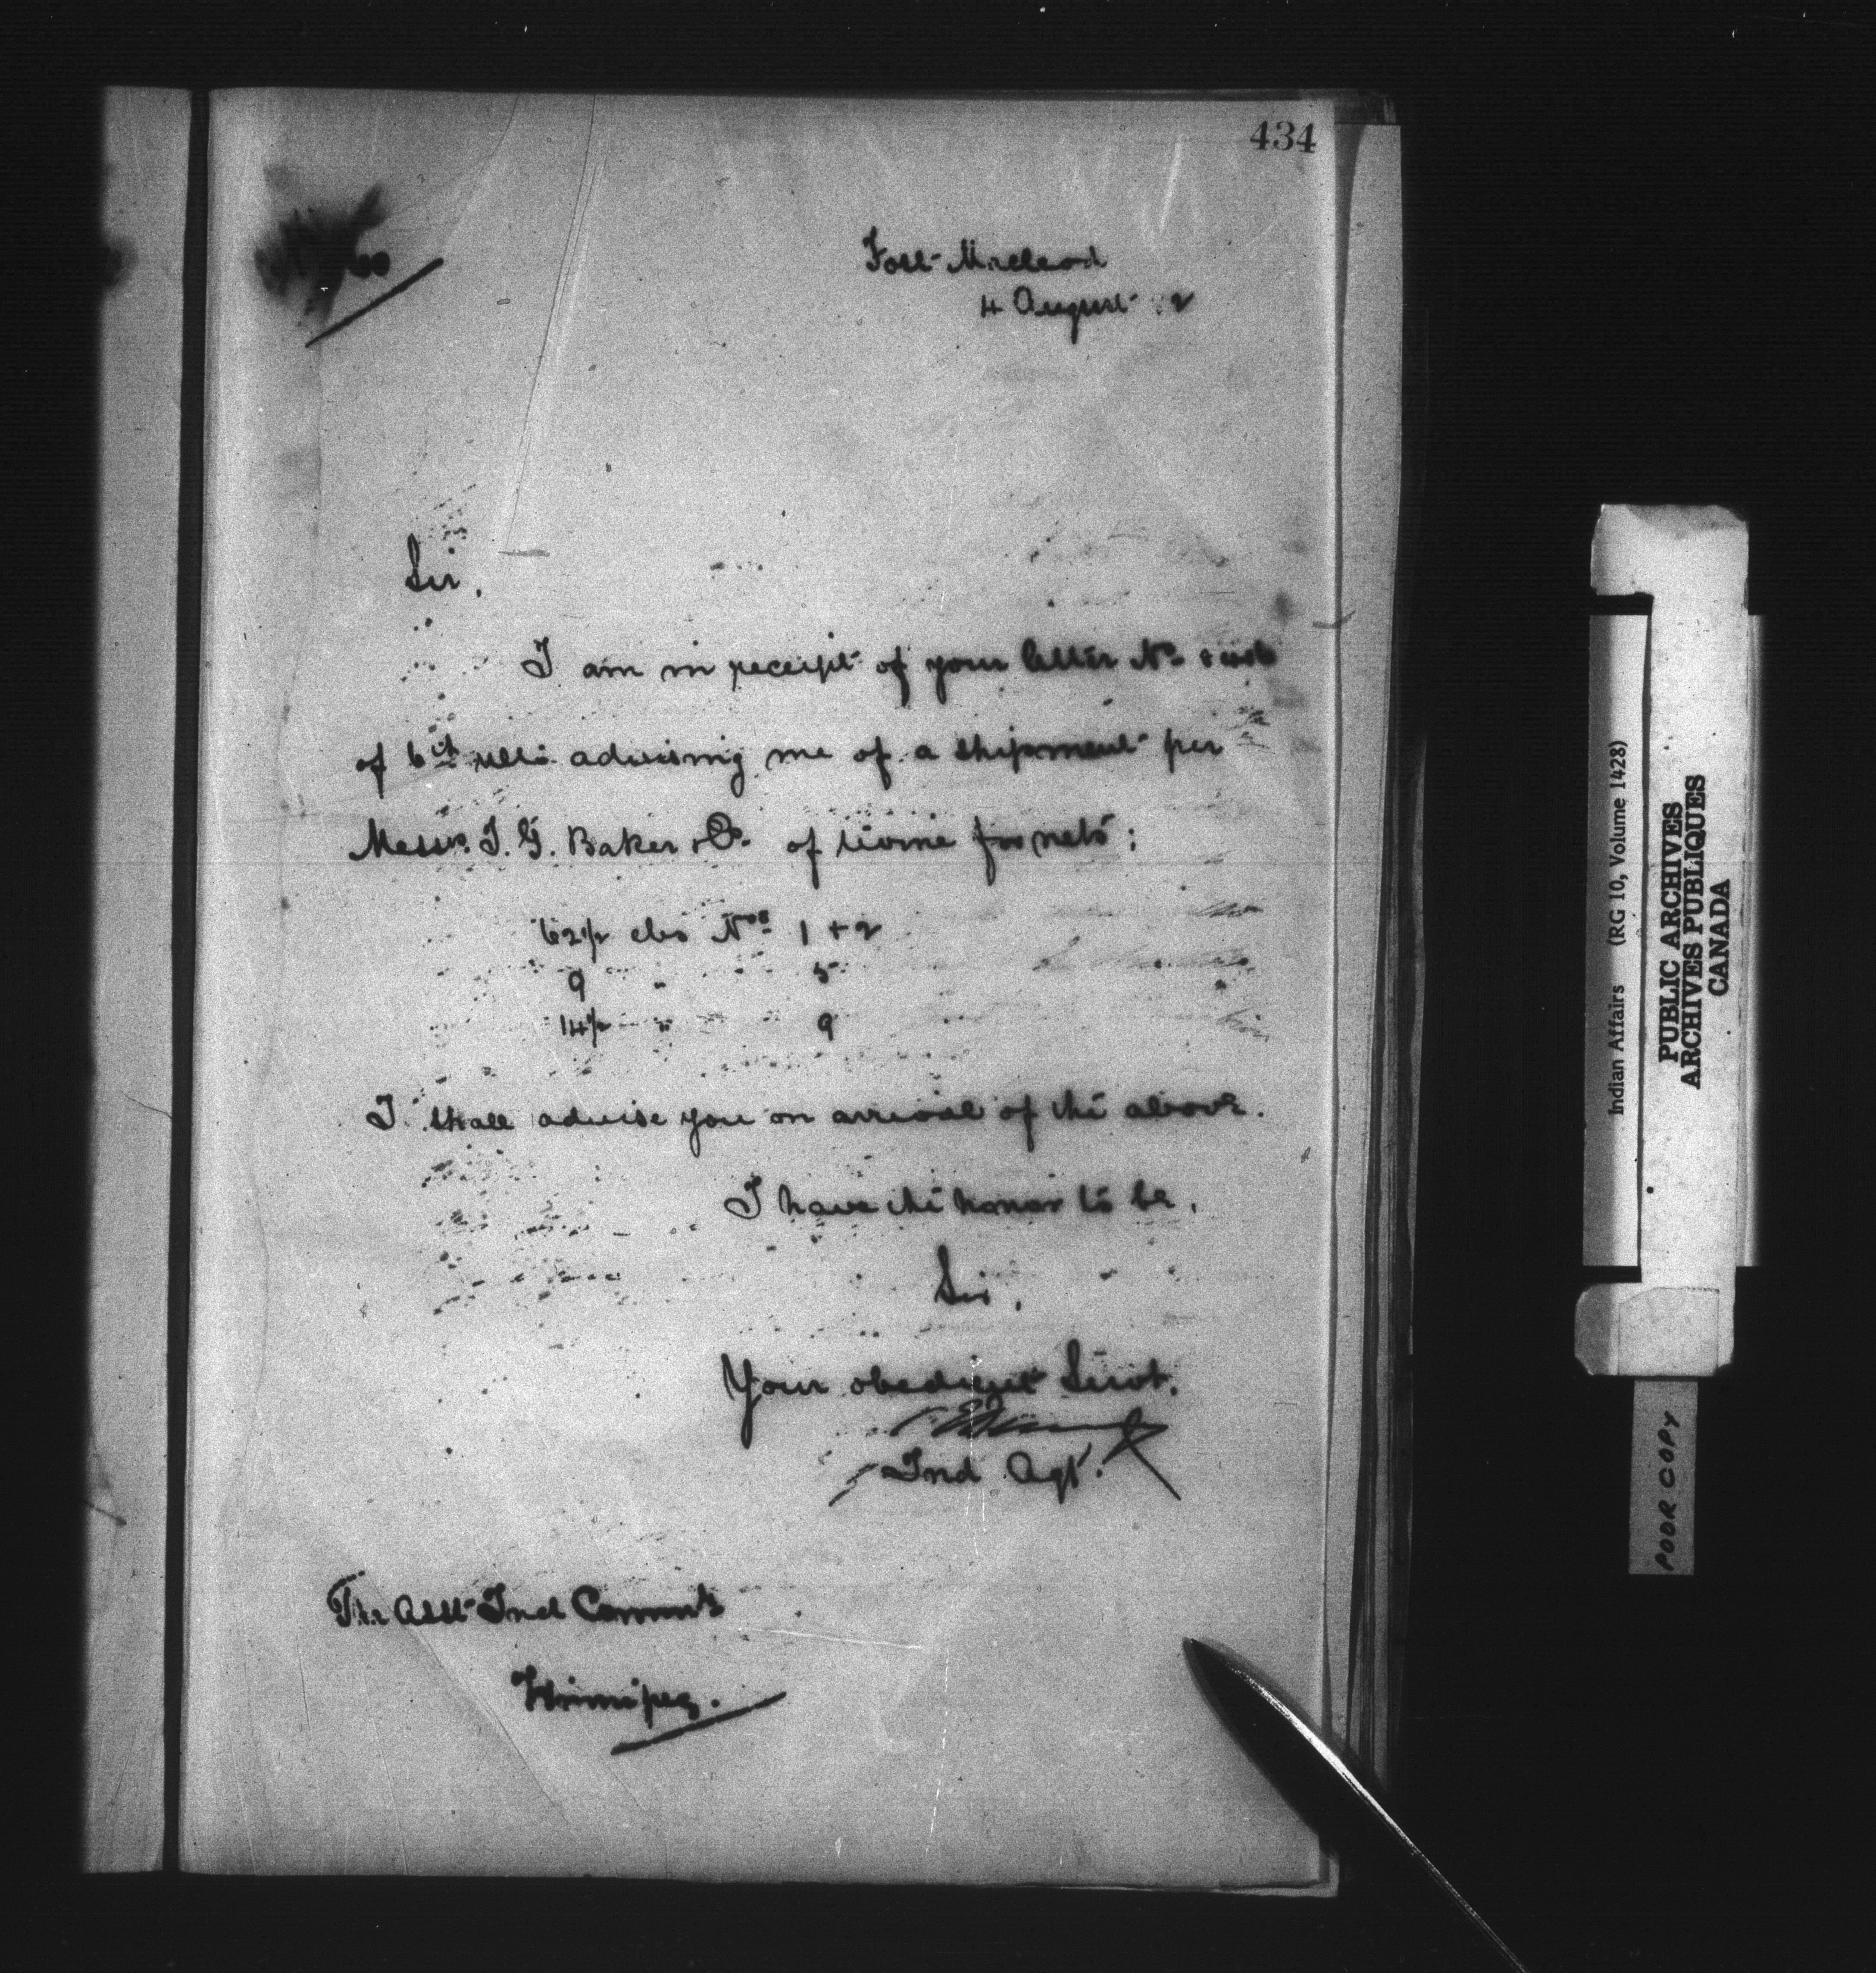 434
Fort McLeod
4 August 2
Sir,
I am in receipt of your letter No.
of 6th ulto advising me of a shipment per
Messrs. I. G. Baker & Co. of twine for nets:
62½ lbs Nos 1 + 2
9 " 5
14½ " 9
I shall advise you on arrival of the above.
I have the honor to be,
Sir,
Your obedient Servt.
Ind Agt.
The Asst Ind Commr
Winnipeg.
Indian Affairs (RG 10, Volume 1428)
PUBLIC ARCHIVES
ARCHIVES PUBLIQUES
CANADA
POOR COPY